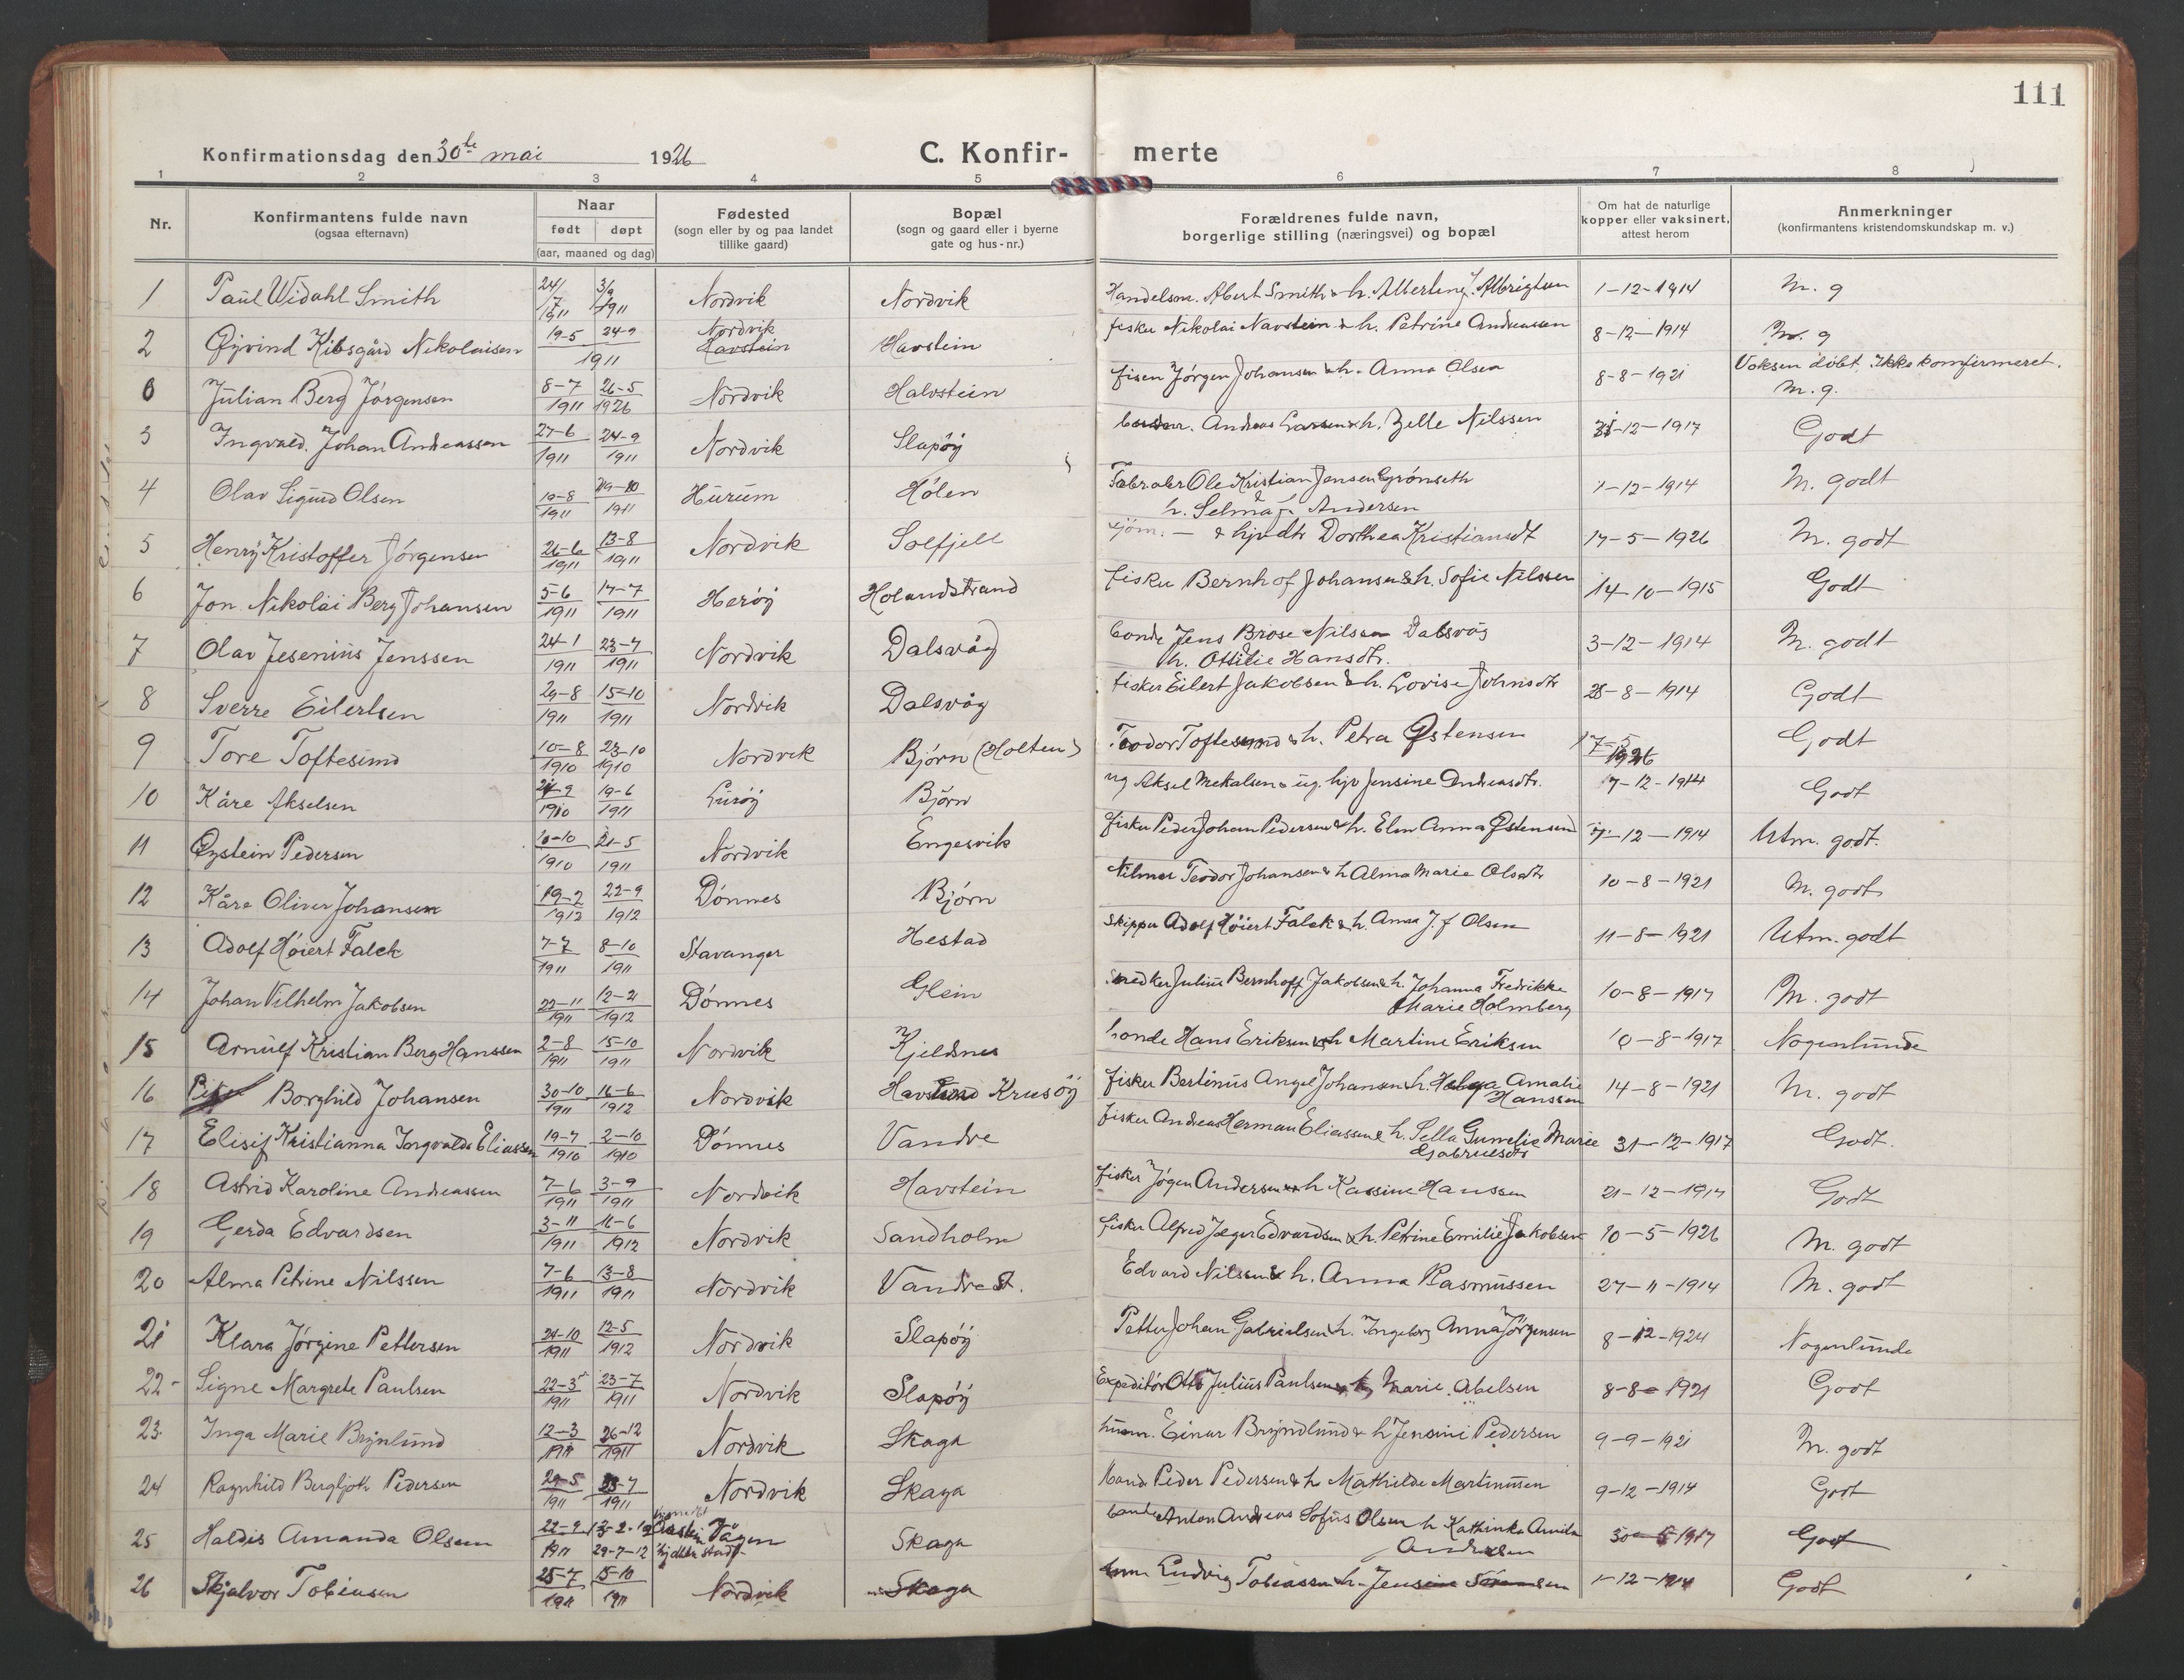 111
Konfirmationsdag den 30te mai 1926
C. Konfir- merte
1 2 3 4 5 6 7 8
Nr.
Konfirmantens fulde navn
(ogsaa efternavn)
Naar
født døpt
(aar, maaned og dag)
Fødested
(sogn eller by og paa landet
tillike gaard)
Bopæl
(sogn og gaard eller i byerne
gate og hus-nr.)
Forældrenes fulde navn,
borgerlige stilling (næringsvei) og bopæl
Om hat de naturlige
kopper eller vaksinert,
attest herom
Anmerkninger
(konfirmantens kristendomskundskap m. v.)
1 Paul Widahl Smith 24/7 1911 3/9 1911 Nordvik Nordvik Handelsm. Albert Smith & h. Albertine J. Albrigtsen 1-12-1914 M. g
2 Øyvind Kibsgård Nikolaisen 19-5 24-9 1911 Nordvik Havstein Havstein fisker Nikolai Navstein & h. Petrine Andreassen 8-12-1914 M. g
0 Julian Berg Jørgensen 8-7 1911 26-5 1926 Nordvik Halvstein fisker Jørgen Johansen & h. Anna Olsen 8-8-1921 Voksen døbt. Ikke konfirmeret. M. g.
3 Ingvald Johan Andreassen 27-6 1911 24-9 1911 Nordvik Slapøy Andreas Larsen & h. Zelle Nilssen 31-12-1917 Godt
4 Olav Sigurd Olsen 10-8 1911 29-10 1911 Hurum Hølen Ole Kristian Jensen Grønseth h. Selma J. Andersen 1-12-1914 M. godt
5 Henry Kristoffer Jørgensen 26-6 1911 13-8 1911 Nordvik Solfjell sjøm. — & hjvdtr Dorthea Kristiansdt 17-5-1926 M. godt
6 Jon Nikolai Berg Johansen 5-6 1911 17-7 1911 Herøy Holandstrand fisker Bernhof Johansen & h. Sofie Nilssen 14-10-1915 Godt
7 Olav Jesenius Jenssen 24-1 1911 23-7 1911 Nordvik Dalsvåg bonde Jens Brose Nilssen Dalsvåg h. Ottilie Hansdtr. 3-12-1914 M. godt
8 Sverre Eilertsen 29-8 1911 15-10 1911 Nordvik Dalsvåg fisker Eilert Jakobsen & h. Lovise Johnsdtr 28-8-1914 Godt
9 Tore Toftesund 10-8 1910 23-10 1910 Nordvik Bjørn (Holten) Teodor Toftesund & h. Petra Østensen 17-5 1926 Godt
10 Kåre Akselsen 21-9 1910 19-6 1911 Lurøy Bjørn ug Aksel Mekalsen & ug. hjv Jensine Andreasdtr. 7-12-1914 Godt
11 Øystein Pedersen 10-10 1910 21-5 1911 Nordvik Engesvik fisker Peder Johan Pedersen & h. Elen Anna Østensen 7-12-1914 Utm. godt.
12 Kåre Oliver Johansen 19-2 1912 22-9 1912 Dønnes Bjørn Hilmar Teodor Johansen & h Alma Marie Olsdtr 10-8-1921 M. godt
13 Adolf Høiert Falck 7-7 1911 8-10 1911 Stavanger Hestad Skipper Adolf Høiert Falck & h. Anna J. f Olsen 11-8-1921 Utm. godt
14 Johan Vilhelm Jakobsen 22-11 1911 12-2 1912 Dønnes Glein Snedker Julius Bernhoff Jakobsen & h. Johanna Fredrikke Marie Holmberg 10-8-1917 M. godt
15 Arnulf Kristian Berg Hanssen 2-8 1911 15-10 1911 Nordvik Kjeldsnes bonde Hans Eriksen & h Martine Eriksen 10-8-1917 Nogenlunde
16 Borghild Johansen 30-10 1911 16-6 1912 Nordvik Krusøy fisker Bertinius Angel Johansen & h. Helga Amalie Hanssen 14-8-1921 M. godt
17 Elisif Kristianna Ingvalda Eliassen 19-7 1910 2-10 1910 Dønnes Vandve fisker Andreas Herman Eliassen & h. Sella Gunelie Marie Gabrielsdtr 31-12-1917 Godt.
18 Astrid Karoline Andreassen 7-6 1911 3-9 1911 Nordvik Havstein fisker Jøgen Andersen & h Kassine Hanssen 21-12-1917 Godt
19 Gerda Edvardsen 3-11 1911 16-6 1912 Nordvik Sandholm fisker Alfred Jæger Edvardsen & h. Petrine Emilie Jakobsen 10-5-1926 M. godt
20 Alma Petrine Nilssen 7-6 1911 13-8 1911 Nordvik Vandve Edvard Nilssen & h. Anna Rasmussen 27-11-1914 M. godt
21 Klara Jørgine Pettersen 24-10 1911 12-5 1912 Nordvik Slapøy Petter Johan Gabrielsen & h. Ingeborg Anna Jørgensen 8-12-1924 Nogenlunde
22 Signe Margrete Paulsen 22-3 1911 23-7 1911 Nordvik Slapøy Expeditør Otto Julius Paulsen & h. Marie Abelsen 8-8-1921 Godt
23. Inga Marie Brynlund 12-3 1911 26-12 1911 Nordvik Skaga Einar Bryndlund & h Jensine Pedersen 9-9-1921 M. godt
24 Ragnhild Bergljoth Pedersen 29-5 1911 23-7 1911 Nordvik Skaga Peder Pedersen & h Mathilde Martinusen 9-12-1914 Godt
25 Haldis Amanda Olsen 22-9 1911 13-2-12 29-7-12 Vågen Skaga bonde Anton Andreas Sofus Olsen h Kathinka Amila Andersen 30-5-1917 Godt
26 Skjalvor Tobiasen 25-7 1911 15-10 1911 Nordvik Skaga Ludvig Tobiassen & h. Jensine Sørensen 1-12-1914 Godt